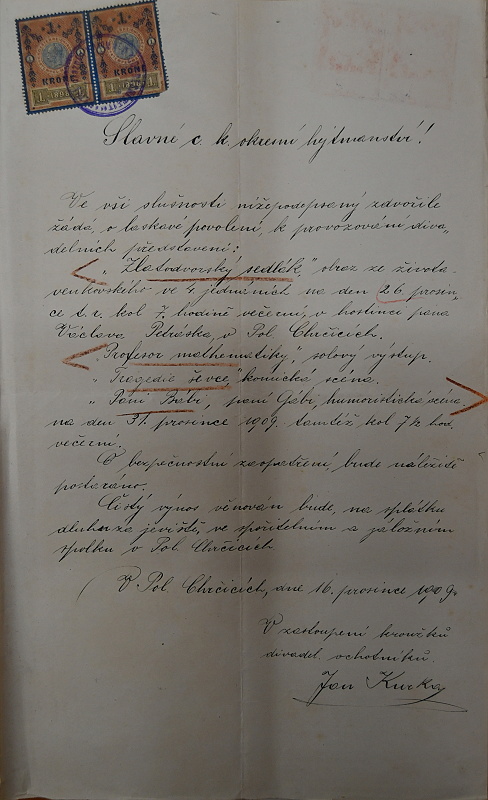 1 1
KRONE KRONE
1 1898 1 1 1898 1
Slavné c. k. okresní hejtmanství!
Ve vší slušnosti nížepodepsaný zdvořile
žádá, o laskavé povolení, k provozování diva„
delních představení:
„Zlatodvorský sedlák“ obraz ze života
venkovského ve 4 jednáních na den 26 prosin„
ce t. r. kol 7. hodině večerní, v hostinci pana
Václava Petráska, v Pol. Chrčicích.
„Profesor mathematiky“, solový výstup.
„Tragedie ševce“, komická scéna.
„Paní Bábi, paní Gábi, humoristická scéna,
na den 31. prosince 1909. tamtéž kol 7½ hod.
večerní.
O bezpečnostní zaopatření, bude náležitě
postaráno.
Čistý výnos věnován bude, na splátku
dluhu za jeviště, ve spořitelním a záložním
spolku v Pol. Chrčicích.
V Pol. Chrčicích, dne 16. prosince 1909.
V zastoupení kroužku
divadel. ochotníků.
Jan Kurka